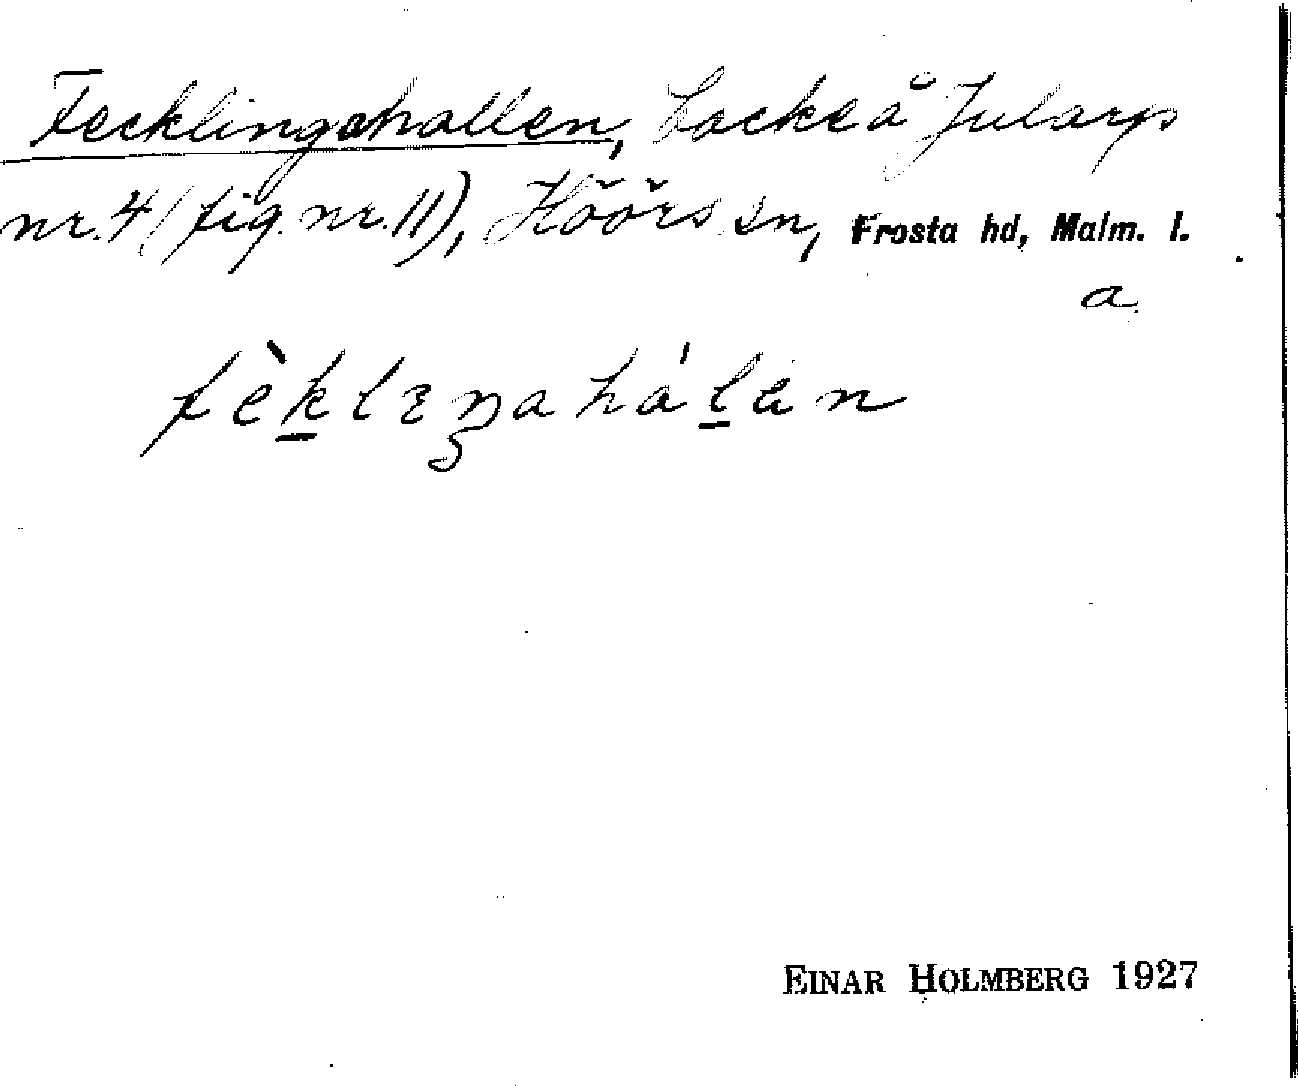 Fecklingahallen, backe å Jularp
nr. 4 (fig. nr. 11), Höörs sn, Frosta hd, Malm. l.
a.
fèklɛŋahálen
EINAR HOLMBERG 1927